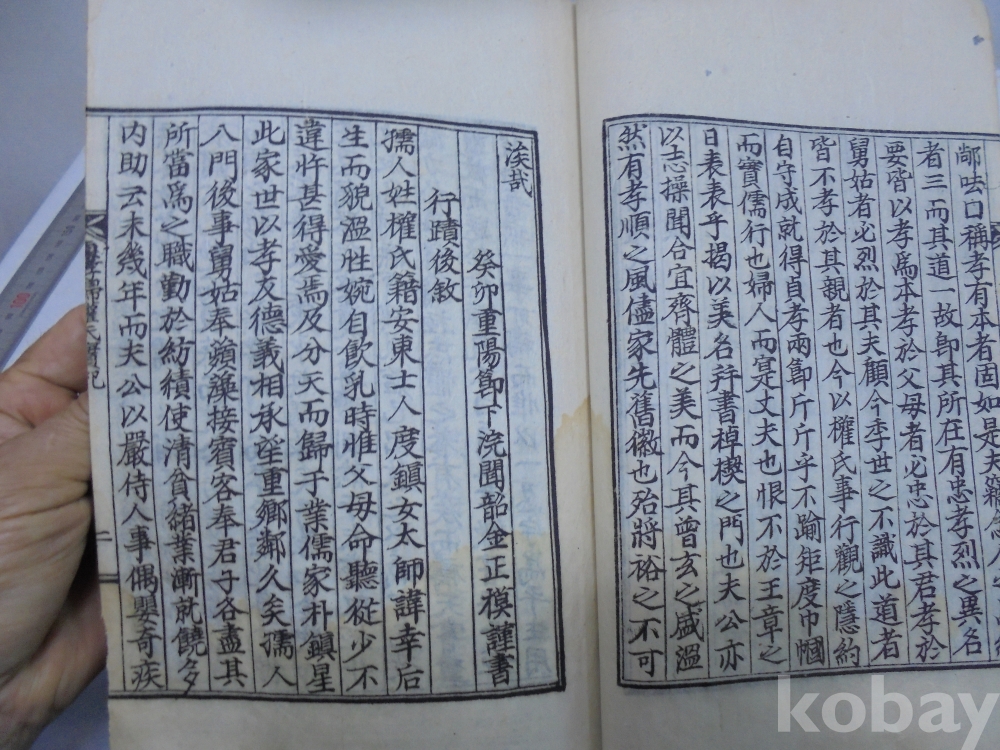 鄗呿口稱孝有本者固如是夫
者三而其道一故卽其所在有忠孝烈之異名
要皆以孝爲本孝於父母者必忠於其君孝於
舅姑者必烈於其夫顧今季世之不識此道者
皆不孝於其親者也今以權氏事行觀之隱約
自守成就得貞孝兩節斤斤乎不踰矩度巾幗
而實儒行也婦人而寔丈夫也恨不於王章之
日表表乎揭以美名幷書棹楔之門也夫公亦
以志操聞合宜齊體之美而今其曾玄之盛溫
然有孝順之風儘家先舊徽也殆將裕之不可
涘哉
癸卯重陽節下浣聞韶金正模謹書
行蹟後敘
孺人姓權氏籍安東士人度鎭女太師諱幸后
生而貌溫性婉自飮乳時惟父母命聽從少不
違忤甚得愛焉及分天而歸于業儒家朴鎭星
此家世以孝友德義相承望重鄕鄰久矣孺人
入門後事舅姑奉蘋藻接賓客奉君子各盡其
所當爲之職勤於紡績使清貧緖業漸就饒多
內助云未幾年而夫公以嚴侍人事偶嬰奇疾
二
kobay